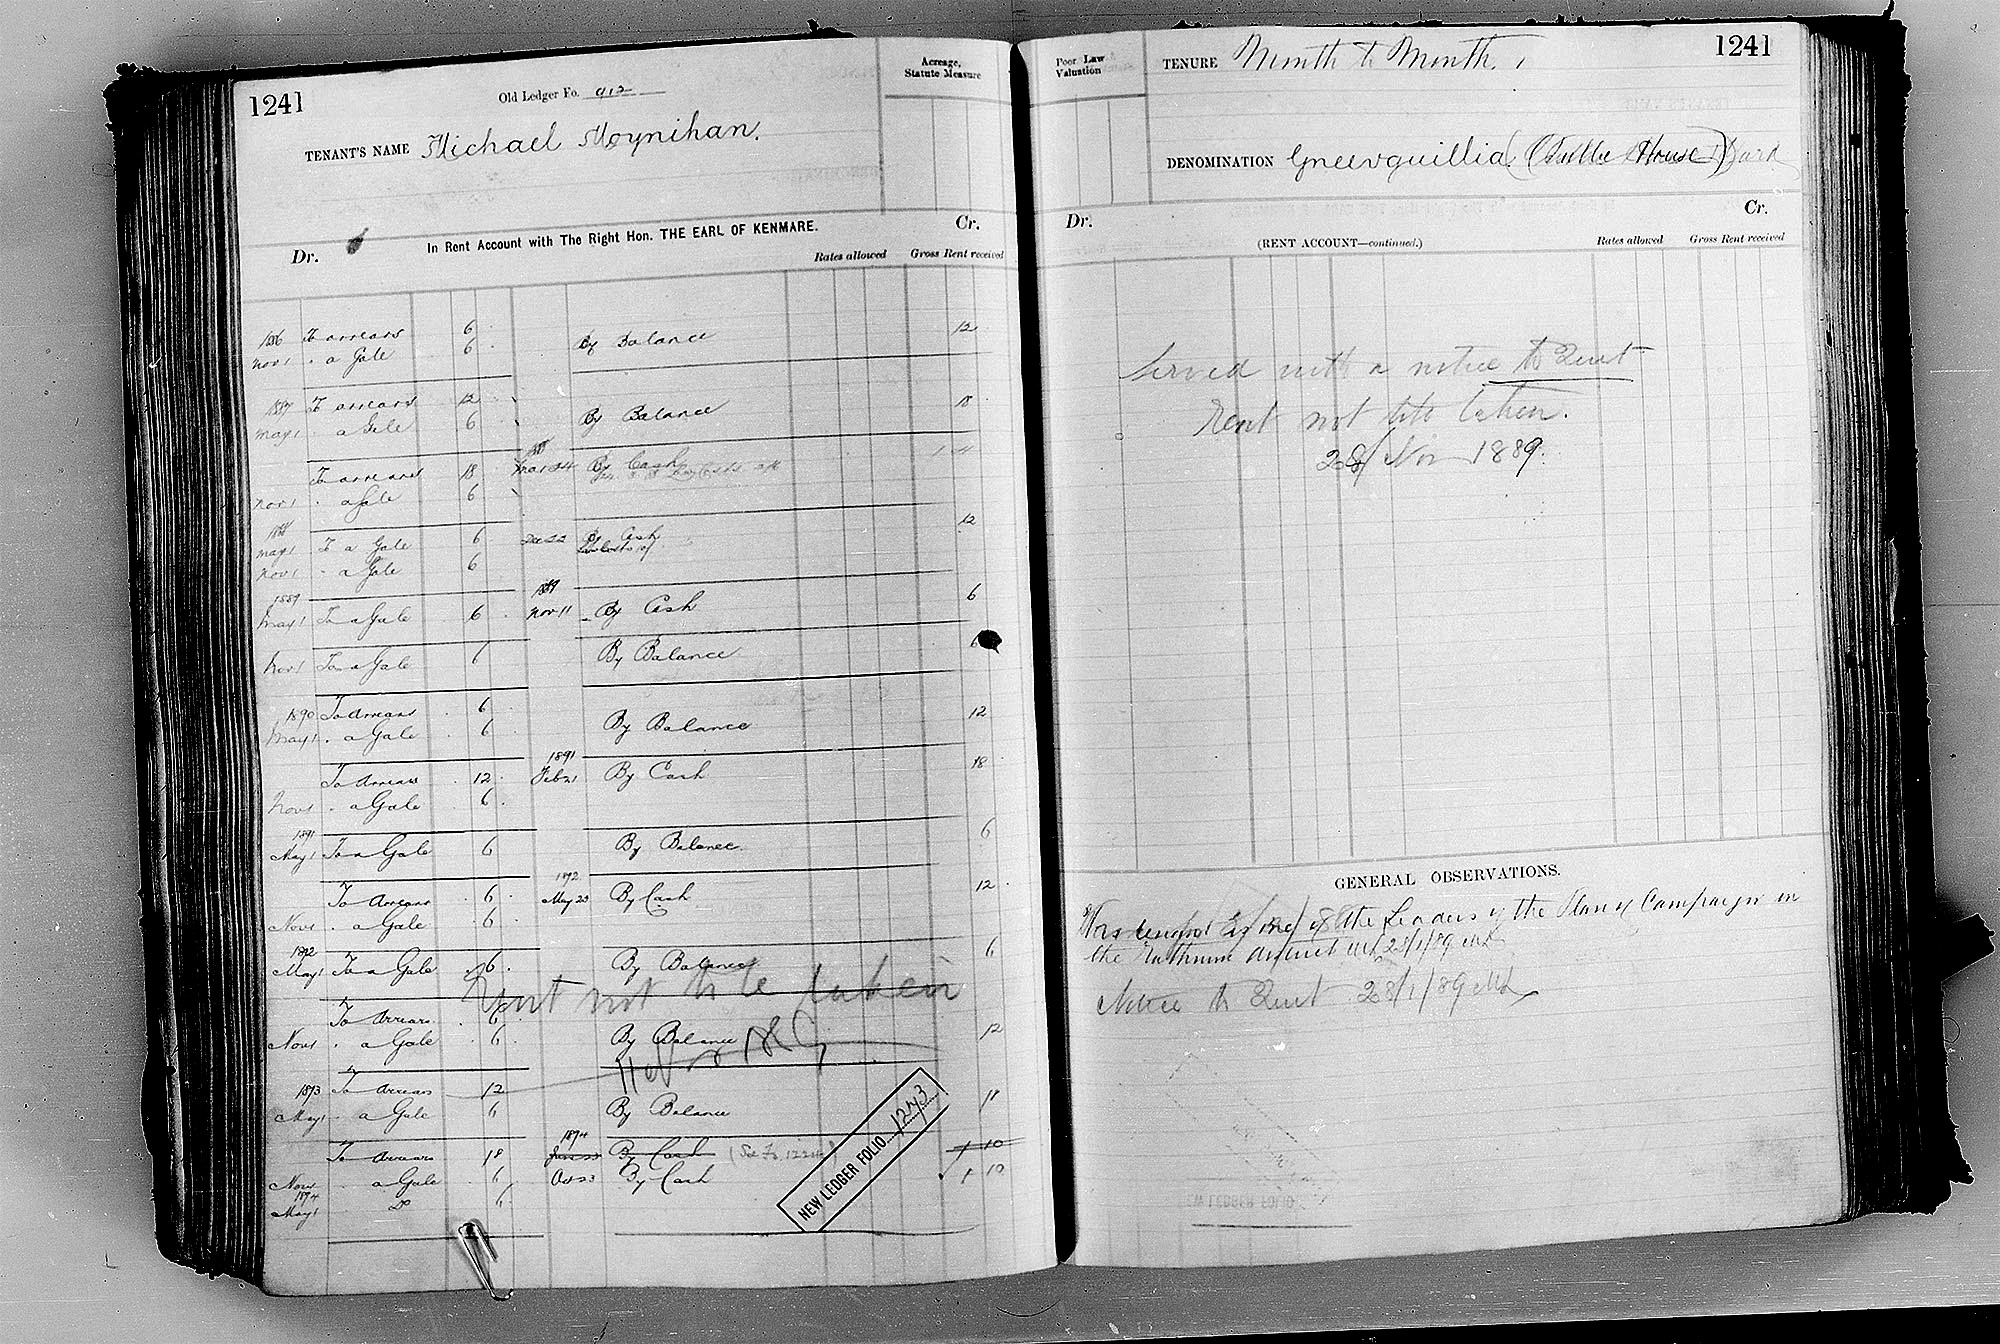 1241
Old Ledger Fo. 912
Acreage, Statute Measure
TENANT'S NAME Michael Moynihan.
In Rent Account with The Right Hon. THE EARL OF KENMARE.
Dr. Cr.
Rates allowed Gross Rent received
1886 To arrears 6 By Balance 12
Nov 1 " a Gale 6
1887 To arrears 12 By Balance 18
May 1 " a Gale 6
To arrears 18 Mar 24 By Cash 1 4
Nov 1 " a Gale 6
1888
May 1 To a Gale 6 Dec 22 By Cash 12
Nov 1 " a Gale 6
1889 1889
May 1 To a Gale 6 Nov 11 By Cash 6
Nov 1 To a Gale 6 By Balance 6
1890 To Arrears 6 By Balance 12
May 1 " a Gale 6
1891
To Arrears 12 Feb 21 By Cash 18
Nov 1 " a Gale 6
1891
May 1 To a Gale 6 By Balance 6
1892
To Arrears 6 May 23 By Cash 12
Nov 1 " a Gale 6
1892
May 1 To a Gale 6 By Balance 6
Rent not to be taken
To Arrears 6 By Balance 12
Nov 1 " a Gale 6
1893 To Arrears 12 By Balance 18
May 1 " a Gale 6
1894
To Arrears 18 By Cash 1 10
Nov 1 " a Gale 6 Oct 23 By Cash 1 10
1894
May 1 Do 6
NEW LEDGER FOLIO 1243
1241
Poor Law Valuation
TENURE Month to Month.
DENOMINATION Gneevguillia (House) Yard
Dr. Cr.
(RENT ACCOUNT—continued.)
Rates allowed Gross Rent received
Served with a notice to Quit
Rent not to be taken.
28/ Nov 1889.
GENERAL OBSERVATIONS.
This tenant is one of the Leaders of the Plan of Campaign in
the Rathmore district 28/1/89
Notice to Quit 28/1/89